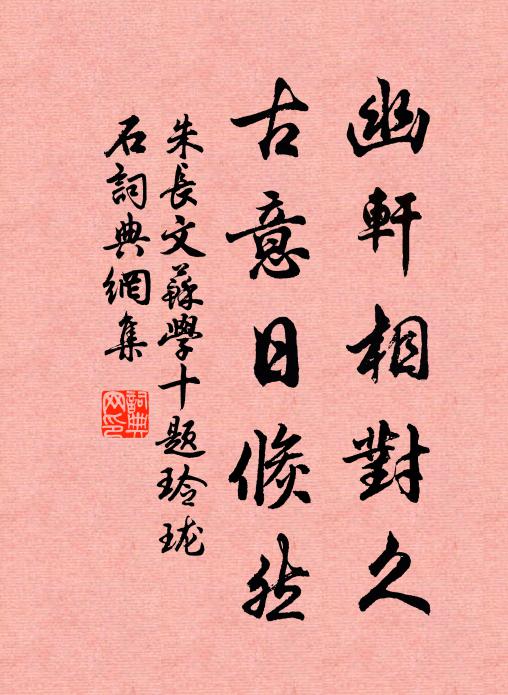 幽軒相對久
古意日倏然
朱長文蘇學十题玲珑
石詞典網集
詞典
网印